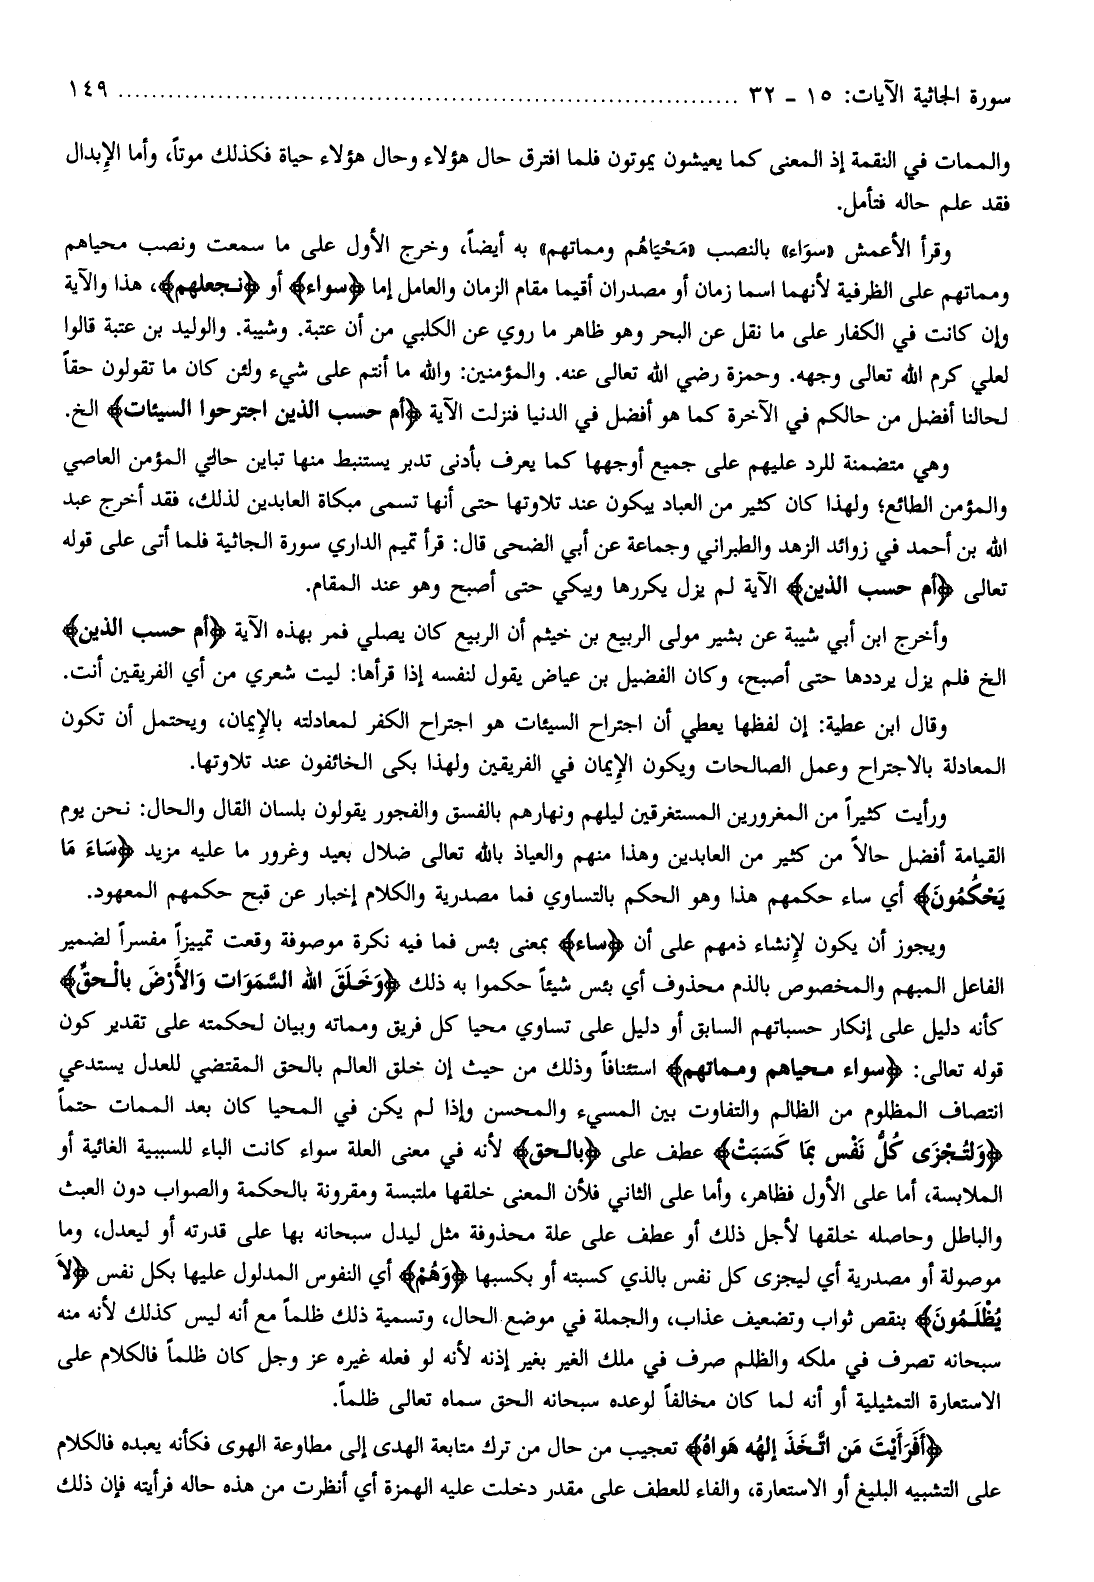 سورة الجاثية الآيات: ١٥ - ٣٢ ........................................................................ ١٤٩
والممات في النقمة إذ المعنى كما يعيشون يموتون فلما افترق حال هؤلاء وحال هؤلاء حياة فكذلك موتاً، وأما الإبدال
فقد علم حاله فتأمل.
وقرأ الأعمش «سوَاء» بالنصب «مَحْيَاهُم ومماتهم» به أيضاً، وخرج الأول على ما سمعت ونصب محياهم
ومماتهم على الظرفية لأنهما اسما زمان أو مصدران أقيما مقام الزمان والعامل إما ﴿سواء﴾ أو ﴿نجعلهم﴾، هذا والآية
وإن كانت في الكفار على ما نقل عن البحر وهو ظاهر ما روي عن الكلبي من أن عتبة. وشيبة. والوليد بن عتبة قالوا
لعلي كرم الله تعالى وجهه. وحمزة رضي الله تعالى عنه. والمؤمنين: والله ما أنتم على شيء ولئن كان ما تقولون حقاً
لحالنا أفضل من حالكم في الآخرة كما هو أفضل في الدنيا فنزلت الآية ﴿أم حسب الذين اجترحوا السيئات﴾ الخ.
وهي متضمنة للرد عليهم على جميع أوجهها كما يعرف بأدنى تدبر يستنبط منها تباين حالتي المؤمن العاصي
والمؤمن الطائع؛ ولهذا كان كثير من العباد يبكون عند تلاوتها حتى أنها تسمى مبكاة العابدين لذلك، فقد أخرج عبد
الله بن أحمد في زوائد الزهد والطبراني وجماعة عن أبي الضحى قال: قرأ تميم الداري سورة الجاثية فلما أتى على قوله
تعالى ﴿أم حسب الذين﴾ الآية لم يزل يكررها ويبكي حتى أصبح وهو عند المقام.
وأخرج ابن أبي شيبة عن بشير مولى الربيع بن خيثم أن الربيع كان يصلي فمر بهذه الآية ﴿أم حسب الذين﴾
الخ فلم يزل يرددها حتى أصبح، وكان الفضيل بن عياض يقول لنفسه إذا قرأها: ليت شعري من أي الفريقين أنت.
وقال ابن عطية: إن لفظها يعطي أن اجتراح السيئات هو اجتراح الكفر لمعادلته بالإيمان، ويحتمل أن تكون
المعادلة بالاجتراح وعمل الصالحات ويكون الإيمان في الفريقين ولهذا بكى الخائفون عند تلاوتها.
ورأيت كثيراً من المغرورين المستغرقين ليلهم ونهارهم بالفسق والفجور يقولون بلسان القال والحال: نحن يوم
القيامة أفضل حالاً من كثير من العابدين وهذا منهم والعياذ بالله تعالى ضلال بعيد وغرور ما عليه مزيد ﴿سَاءَ مَا
يَحْكُمُونَ﴾ أي ساء حكمهم هذا وهو الحكم بالتساوي فما مصدرية والكلام إخبار عن قبح حكمهم المعهود.
ويجوز أن يكون لإنشاء ذمهم على أن ﴿ساء﴾ بمعنى بئس فما فيه نكرة موصوفة وقعت تمييزاً مفسراً لضمير
الفاعل المبهم والمخصوص بالذم محذوف أي بئس شيئاً حكموا به ذلك ﴿وَخَلَقَ الله السَّمَوَات وَالأَرْضَ بالْحقِّ﴾
كأنه دليل على إنكار حسباتهم السابق أو دليل على تساوي محيا كل فريق ومماته وبيان لحكمته على تقدير كون
قوله تعالى: ﴿سواء محياهم ومماتهم﴾ استئنافاً وذلك من حيث إن خلق العالم بالحق المقتضي للعدل يستدعي
انتصاف المظلوم من الظالم والتفاوت بين المسيء والمحسن وإذا لم يكن في المحيا كان بعد الممات حتماً
﴿وَلتُجْزَى كُلُّ نَفْس بمَا كَسَبَتْ﴾ عطف على ﴿بالحق﴾ لأنه في معنى العلة سواء كانت الباء للسببية الغائية أو
الملابسة، أما على الأول فظاهر، وأما على الثاني فلأن المعنى خلقها ملتبسة ومقرونة بالحكمة والصواب دون العبث
والباطل وحاصله خلقها لأجل ذلك أو عطف على علة محذوفة مثل ليدل سبحانه بها على قدرته أو ليعدل، وما
موصولة أو مصدرية أي ليجزى كل نفس بالذي كسبته أو بكسبها ﴿وَهُمْ﴾ أي النفوس المدلول عليها بكل نفس ﴿لاَ
يُظْلَمُونَ﴾ بنقص ثواب وتضعيف عذاب، والجملة في موضع الحال، وتسمية ذلك ظلماً مع أنه ليس كذلك لأنه منه
سبحانه تصرف في ملكه والظلم صرف في ملك الغير بغير إذنه لأنه لو فعله غيره عز وجل كان ظلماً فالكلام على
الاستعارة التمثيلية أو أنه لما كان مخالفاً لوعده سبحانه الحق سماه تعالى ظلماً.
﴿أَفَرَأَيْتَ مَن اتَّخَذَ إلهُه هَواهُ﴾ تعجيب من حال من ترك متابعة الهدى إلى مطاوعة الهوى فكأنه يعبده فالكلام
على التشبيه البليغ أو الاستعارة، والفاء للعطف على مقدر دخلت عليه الهمزة أي أنظرت من هذه حاله فرأيته فإن ذلك